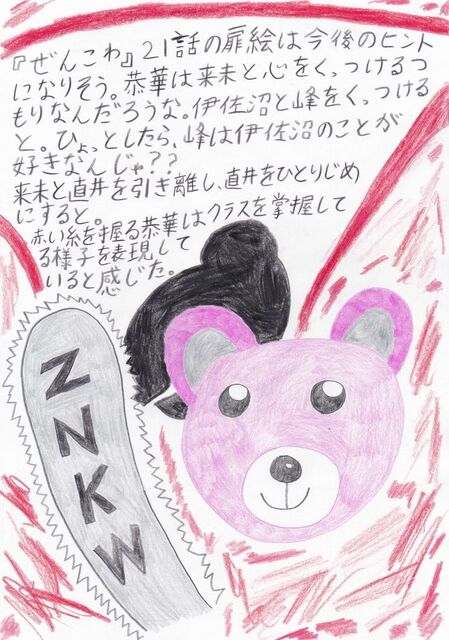 『ぜんこわ』21話の扉絵は今後のヒント
になりそう。恭華は来未と心をくっつけるつ
もりなんだろうな。伊佐沼と峰をくっつける
と。ひょっとしたら、峰は伊佐沼のことが
好きなんじゃ??
来未と直井を引き離し、直井をひとりじめ
にすると。
赤い糸を握る恭華はクラスを掌握して
る様子を表現して
いると感じた。
ZNKW